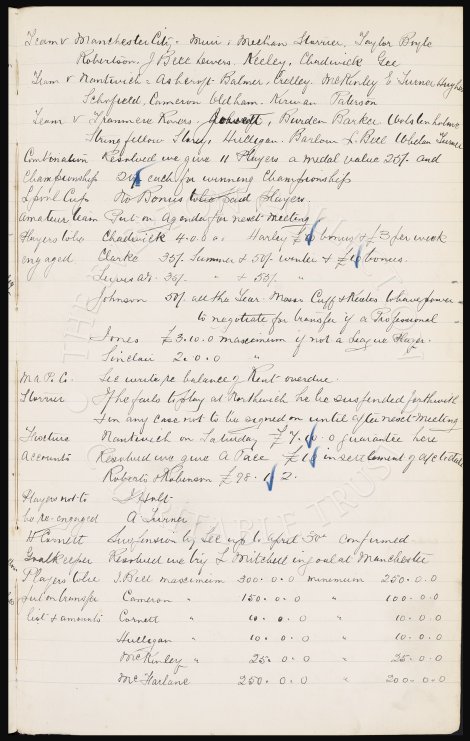 Team v Manchester City = Muir, Meehan Storrier, Taylor Boyle
Robertson, J Bell Sewers, Keeley, Chadwick Gee
Team v Nantwich = Ashcroft Balmer, Crelley McKinley E Turner Hughes
Schofield, Cameron Oldham. Kirwan Paterson
Team v Tranmere Rovers, Burden Barker Wolstenholme
Stringfellow Storey, Hulligan, Barlow L Bell Whelan Turner
Combination Resolved we give 11 Players a medal value 25/- and
Championship each for winning Championship
L'pool Cup No Bonus to be paid Players.
Amateur team Put on Agenda for next meeting
Players to be Chadwick 4.0.0 Harley £10 bonus & £3 per week
engaged Clarke 35/- Summer & 50/- winter & £10 bonus.
35/- " & 55/- "
Johnson 50/- all the Year. Messrs Cuff & Keates to have power
to negotiate for transfer if a Professional
Jones £3.10.0 maximum if not a League Player.
Sinclair 2.0.0 "
M.A.P.Co. Sec write re balance of Rent overdue.
Storrier If he fails to play at Northwich he be suspended forthwith
& in any case not to be signed on until after next meeting
Fixture Nantwich on Saturday £7.10.0 guarantee here
Accounts Resolved we give A Pace £10 in settlement of a/c
Roberts & Robinson £98.1.2.
Players not to J Holt
be re-engaged A Turner
H Corrett Suspension by Sec up to april 30th confirmed
Goalkeeper Resolved we try L Mitchell in goal at Manchester
Players to be J Bell maximum 300.0.0 minimum 250.0.0
put on transfer Cameron " 150.0.0 " 100.0.0
list & amounts Corrett " 10.0.0 " 10.0.0
Hulligan " 10.0.0 " 10.0.0
McKinley " 25.0.0 " 25.0.0
McFarlane 250.0.0 " 200.0.0